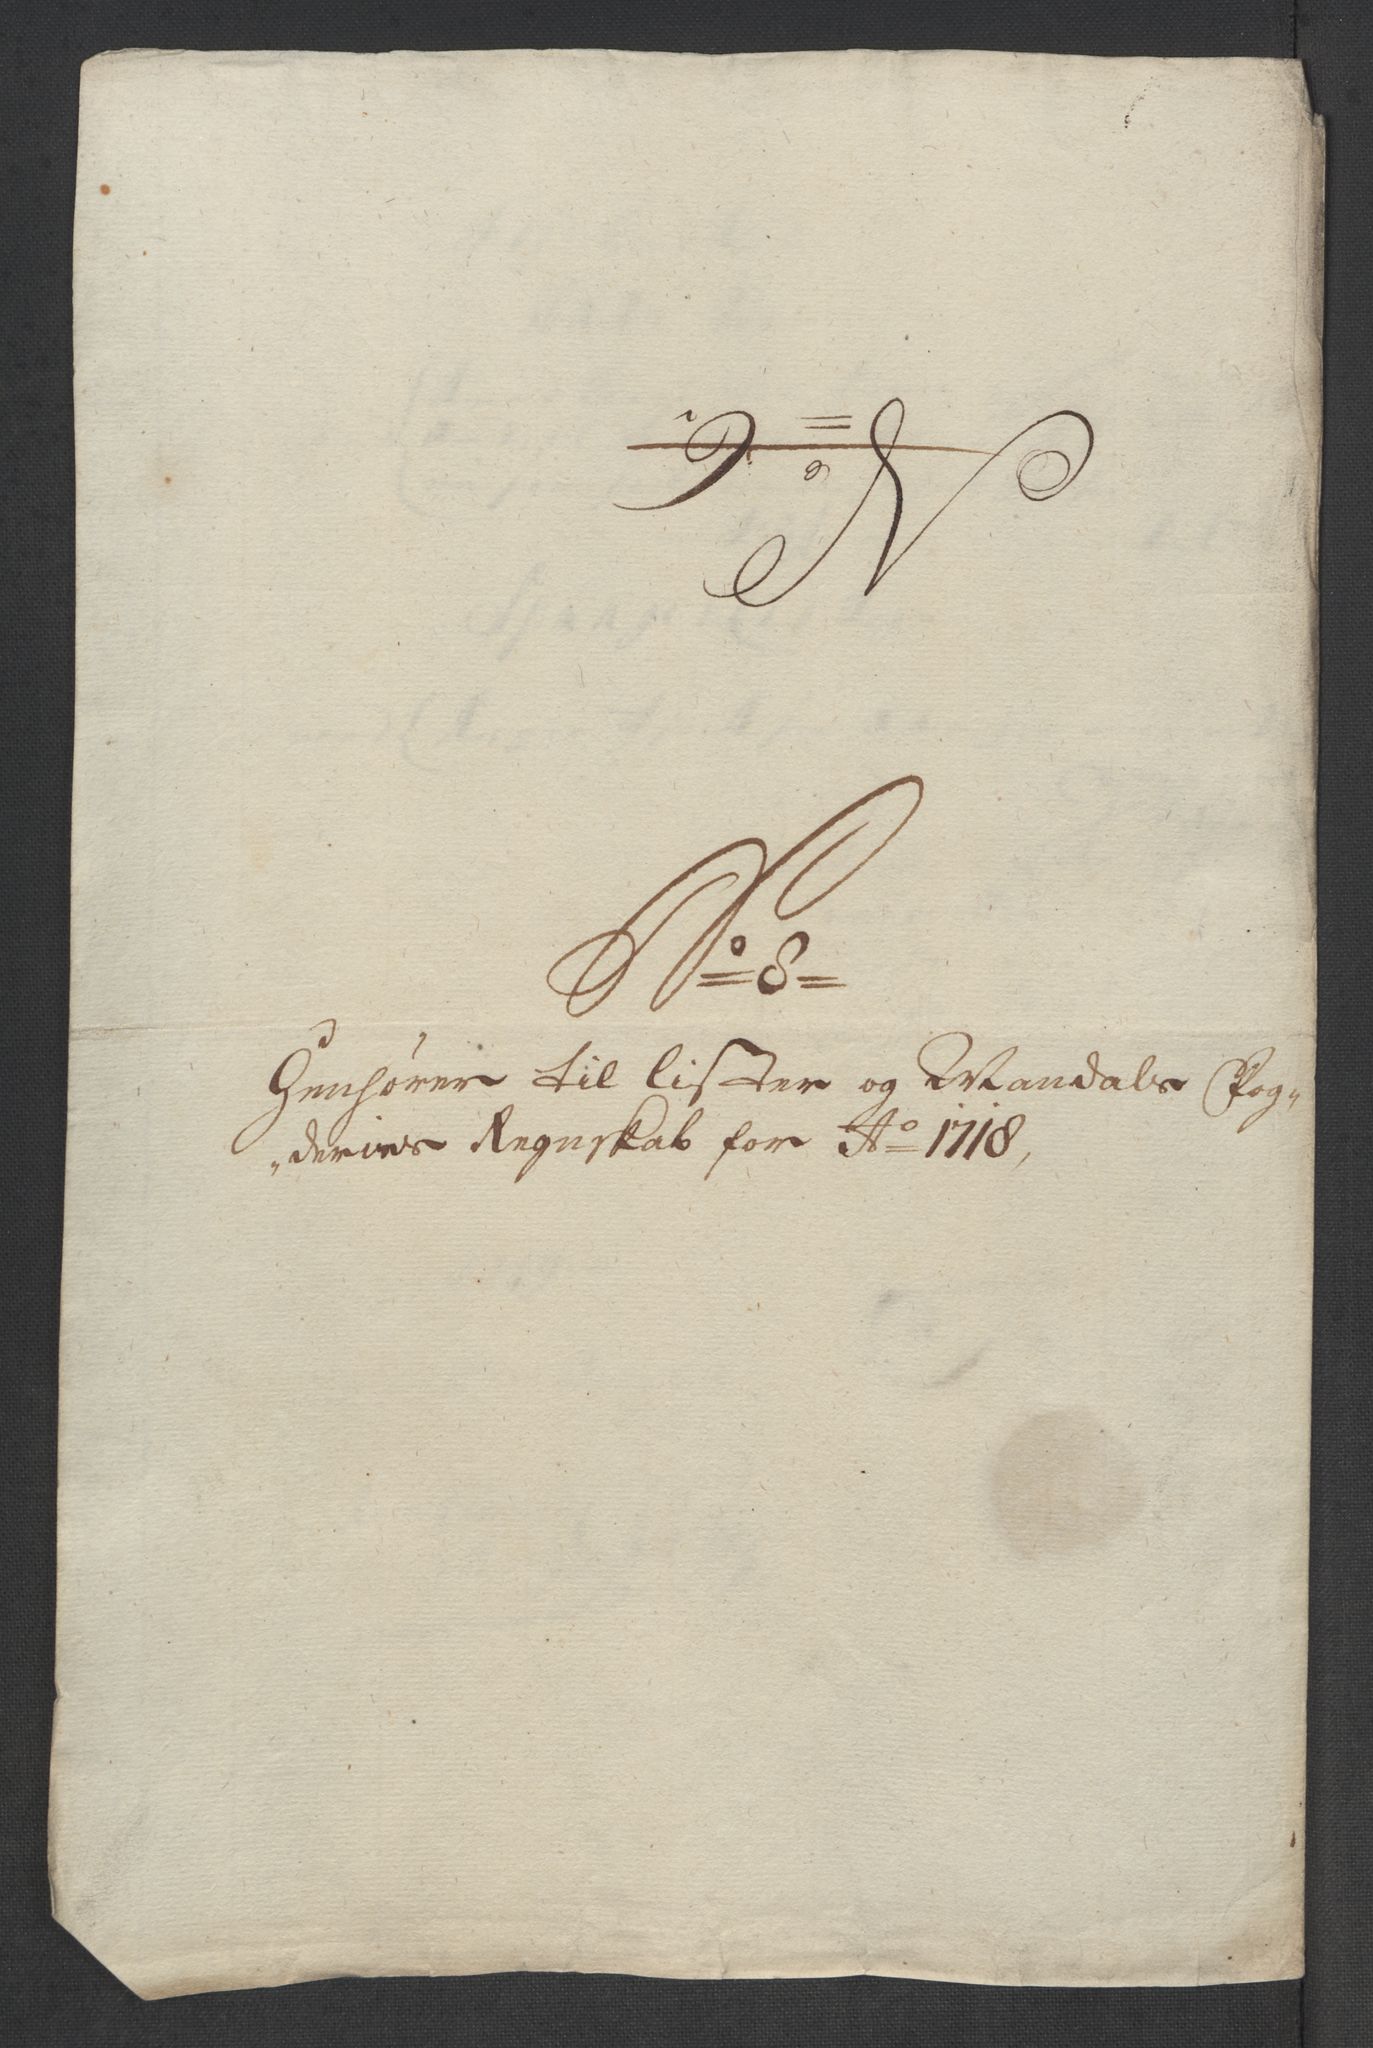 No 8
Henhører til Lister og Mandals Fog„
„deries Regnskab for Ao 1718,